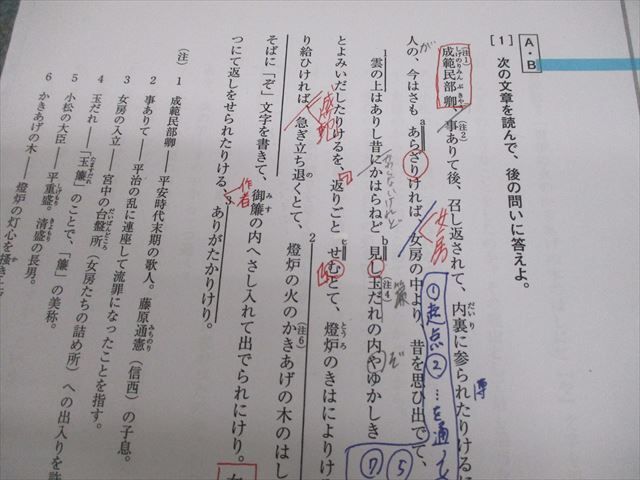 A・B
［1］ 次の文章を読んで、後の問いに答えよ。
成範民部卿、事ありて後、召し返されて、内裏に参られたりけるに
人の、今はさも あらざりければ、女房の中より、昔を思ひ出でて、
雲の上はありし昔にかはらねど 見し玉だれの内やゆかしき
とよみいだしたりけるを、返りごと せむとて、燈炉のきはによりけ
り給ひければ、急ぎ立ち退くとて、燈炉の火のかきあげの木のはし
そばに「ぞ」文字を書きて、御簾の内へさし入れて出でられにけり。
つにて返しをせられたりける、ありがたかりけり。
（注） 1 成範民部卿――平安時代末期の歌人。藤原通憲（信西）の子息。
2 事ありて――平治の乱に連座して流罪になったことを指す。
3 女房の入立――宮中の台盤所（女房たちの詰め所）への出入りを許
4 玉だれ――「玉簾」のことで、「簾」の美称。
5 小松の大臣――平重盛。清盛の長男。
6 かきあげの木――燈炉の灯心を掻き
女房
作者
①起点②…を通
⑦⑤